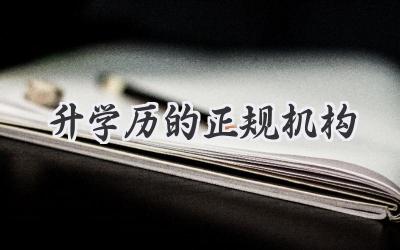 升学历的正规机构